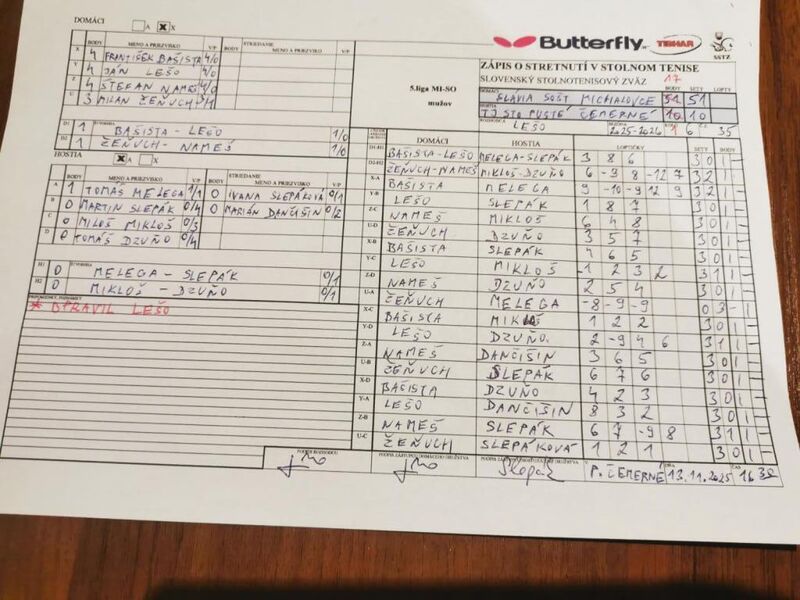 DOMÁCI A X X
BODY MENO A PRIEZVISKO V/P BODY STRIEDANIE MENO A PRIEZVISKO V/P
X 4 FRANTIŠEK BAŠISTA 4/0
Y 4 JÁN LEŠO 4/0
Z 4 ŠTEFAN NAMEŠ 4/0
U 3 MILAN ŽEŇUCH 3/1
D1 1 BAŠISTA - LEŠO 1/0
D2 1 ŽEŇUCH - NAMEŠ 1/0
HOSTIA X A X
BODY MENO A PRIEZVISKO V/P BODY STRIEDANIE MENO A PRIEZVISKO V/P
A 1 TOMÁŠ MELEGA 1/1 0 IVANA SLEPÁKOVÁ 0/1
B 0 MARTIN SLEPÁK 0/4 0 MARIÁN DANČIŠIN 0/2
C 0 MILOŠ MIKLOŠ 0/3
D 0 TOMÁŠ DZUŇO 0/4
H1 0 MELEGA - SLEPÁK 0/1
H2 0 MIKLOŠ - DZUŇO 0/1
PRIPOMIENKY, PODNETY
* OPRAVIL LEŠO
5.liga MI-SO
mužov
Butterfly
TIBHAR
SSTZ
ZÁPIS O STRETNUTÍ V STOLNOM TENISE
SLOVENSKÝ STOLNOTENISOVÝ ZVÄZ 17
BODY SETY LOPTY
DOMÁCI SLÁVIA SOŠT MICHALOVCE 51
HOSTIA TJ ŠTO PUSTÉ ČEMERNÉ 10
ROZHODCA LEŠO SEZÓNA 2025-2026 6 35
DOMÁCI HOSTIA LOPTIČKY SETY
D1-H1 BAŠISTA-LEŠO MELEGA-SLEPÁK 3 8 6 3 0 1
D2-H2 ŽEŇUCH-NAMEŠ MIKLOŠ-DZUŇO 6 -3 8 -12 7 3 2 1
X-A BAŠISTA MELEGA 9 -10 -9 12 9 3 2 1
Y-B LEŠO SLEPÁK 1 8 7 3 0 1
Z-C NAMEŠ MIKLOŠ 6 4 8 3 0 1
U-D ŽEŇUCH DZUŇO 3 5 7 3 0 1
X-B BAŠISTA SLEPÁK 4 6 5 3 0 1
Y-C LEŠO MIKLOŠ -1 2 3 2 3 1 1
Z-D NAMEŠ DZUŇO 2 5 4 3 0 1
U-A ŽEŇUCH MELEGA -8 -9 -9 0 3 - 1
X-C BAŠISTA MIKLOŠ 1 2 2 3 0 1
Y-D LEŠO DZUŇO 2 -9 4 6 3 1 1
Z-A NAMEŠ DANČIŠIN 3 6 5 3 0 1
U-B ŽEŇUCH SLEPÁK 6 7 6 3 0 1
X-D BAŠISTA DZUŇO 4 2 3 3 0 1
Y-A LEŠO DANČIŠIN 8 3 2 3 0 1
Z-B NAMEŠ SLEPÁK 6 7 -9 8 3 1 1
U-C ŽEŇUCH SLEPÁKOVÁ 1 2 1 3 0 1
PODPIS ROZHODCU PODPIS ZÁSTUPCU DOMÁCEHO DRUŽSTVA Slepák V P. ČEMERNÉ DŇA 13.11.2025 ČAS